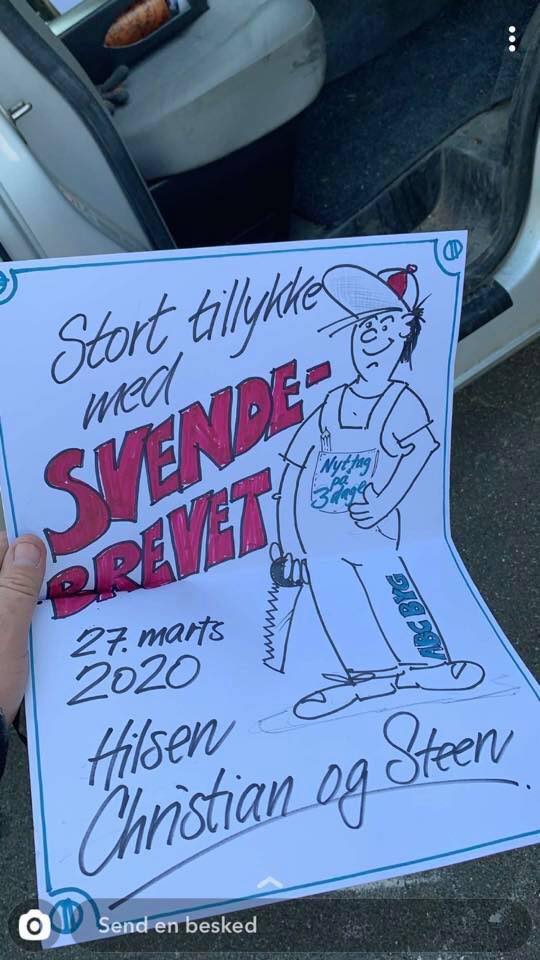 Stort tillykke
med
SVENDE-
BREVET
Nyt tag
på
3 dage
ABC BYG
27. marts
2020
Hilsen
Christian og Steen.
Send en besked